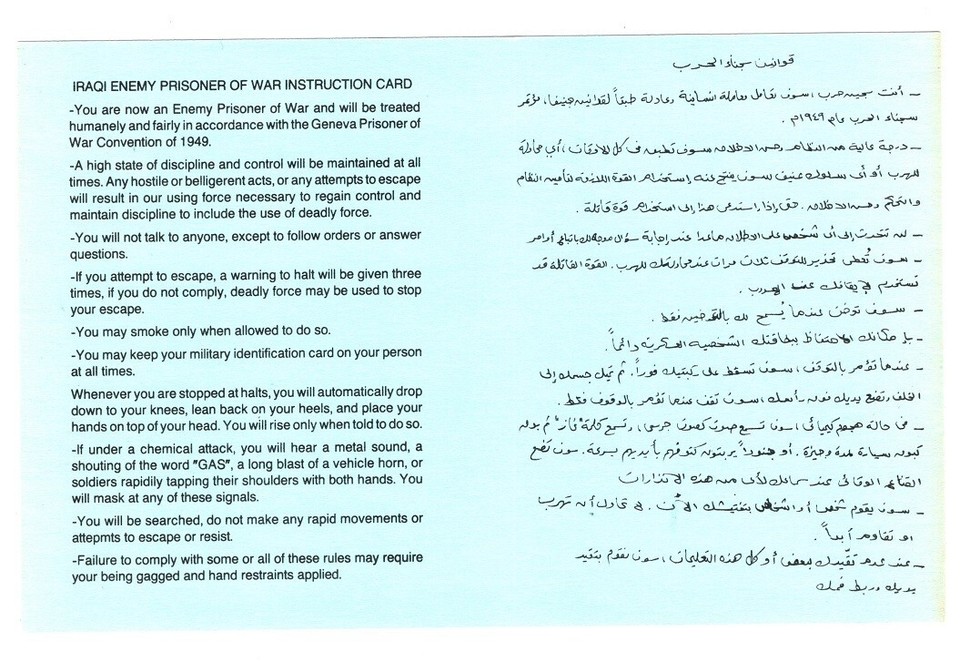 IRAQI ENEMY PRISONER OF WAR INSTRUCTION CARD
-You are now an Enemy Prisoner of War and will be treated
humanely and fairly in accordance with the Geneva Prisoner of
War Convention of 1949.
-A high state of discipline and control will be maintained at all
times. Any hostile or belligerent acts, or any attempts to escape
will result in our using force necessary to regain control and
maintain discipline to include the use of deadly force.
-You will not talk to anyone, except to follow orders or answer
questions.
-If you attempt to escape, a warning to halt will be given three
times, if you do not comply, deadly force may be used to stop
your escape.
-You may smoke only when allowed to do so.
-You may keep your military identification card on your person
at all times.
Whenever you are stopped at halts, you will automatically drop
down to your knees, lean back on your heels, and place your
hands on top of your head. You will rise only when told to do so.
-If under a chemical attack, you will hear a metal sound, a
shouting of the word "GAS", a long blast of a vehicle horn, or
soldiers rapidily tapping their shoulders with both hands. You
will mask at any of these signals.
-You will be searched, do not make any rapid movements or
attepmts to escape or resist.
-Failure to comply with some or all of these rules may require
your being gagged and hand restraints applied.
قوانين سجناء الحرب
- أنت سجين حرب، سوف تعامل معاملة انسانية وعادلة طبقاً لقوانين جنيف، مؤتمر
سجناء الحرب عام ١٩٤٩م.
- درجة عالية من النظام سوف تطبق في كل الاوقات، أي محاولة
للهرب أو أي سلوك عنيف سوف ينتج عنه إستخدام القوة اللازمة لتأمين النظام
والتحكم حتى إذا استدعى هذا إلى استخدام قوة قاتلة.
- لن تتحدث إلى أي شخص على الاطلاق ماعدا عند إجابة سؤال موجه لك باتباع أوامر
- سوف تُعطى تحذير للتوقف ثلاث مرات عند محاولتك للهرب. القوة القاتلة قد
تستخدم لإيقافك عند الهرب.
- سوف تدخن عندما يُسمح لك بالتدخين فقط.
- بإمكانك الاحتفاظ ببطاقتك الشخصية العسكرية دائماً.
- عندما تؤمر بالتوقف، سوف تسقط على ركبتيك فوراً. ثم تميل جسمك إلى
الخلف وتضع يديك فوق رأسك، سوف تقف عندما تؤمر بالوقوف فقط.
- في حالة هجوم كيميائي، سوف تسمع صوت كصوت جرس، وتسمع كلمة "غاز" ثم بوق
سيارة لمدة وجيزة. أو جنوداً يربتون كتوفهم بأيديهم بسرعة. سوف تضع
القناع الوقائي عند سماعك لأي من هذه الانذارات
- سوف يقوم شخص أو اشخاص بتفتيشك الآن. لا تحاول أن تهرب
او تقاوم أبداً.
- عند عدم تقيّدك ببعض أو كل هذه التعليمات، سوف نقوم بتقيد
يديك وربط فمك